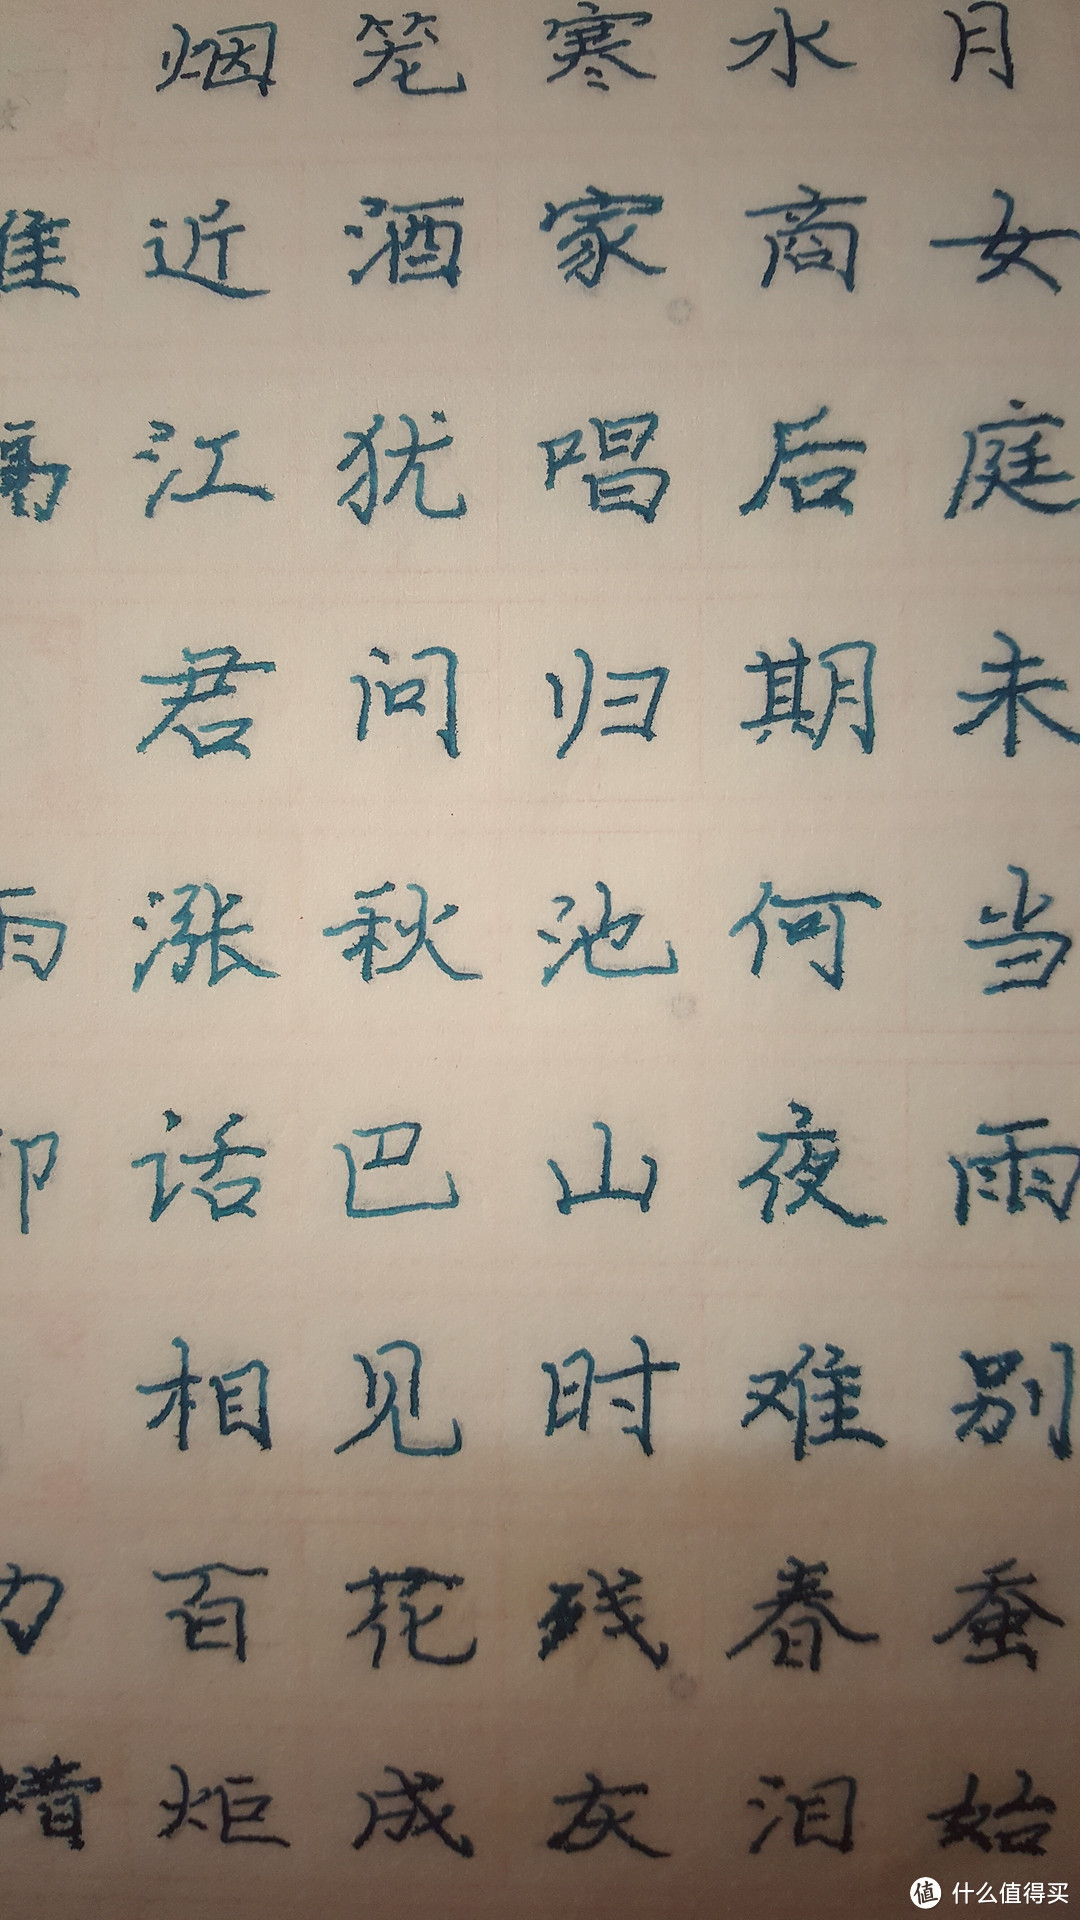 烟笼寒水月
淮近酒家商女
江犹唱后庭
君问归期未
雨涨秋池何当
话巴山夜雨
相见时难别
力百花残春蚕
蜡炬成灰泪始
值 什么值得买